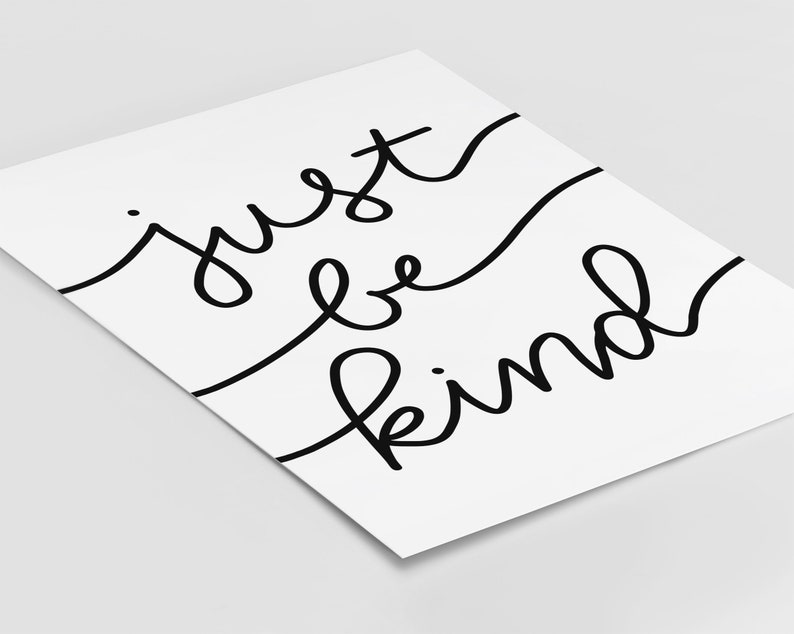 just
be
kind